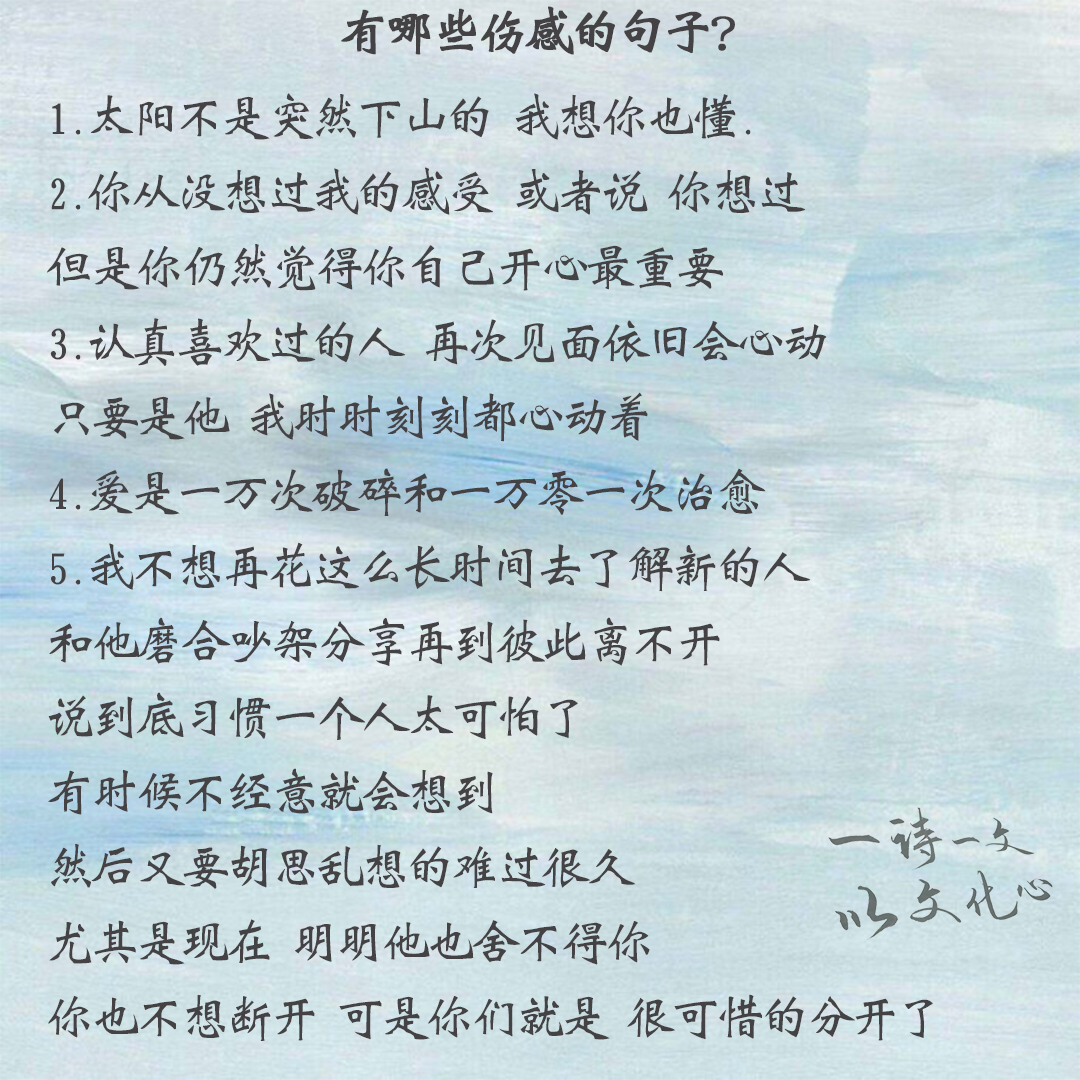 有哪些伤感的句子?
1.太阳不是突然下山的 我想你也懂.
2.你从没想过我的感受 或者说 你想过
但是你仍然觉得你自己开心最重要
3.认真喜欢过的人 再次见面依旧会心动
只要是他 我时时刻刻都心动着
4.爱是一万次破碎和一万零一次治愈
5.我不想再花这么长时间去了解新的人
和他磨合吵架分享再到彼此离不开
说到底习惯一个人太可怕了
有时候不经意就会想到
然后又要胡思乱想的难过很久
尤其是现在 明明他也舍不得你
你也不想断开 可是你们就是 很可惜的分开了
一诗一文
以文化心